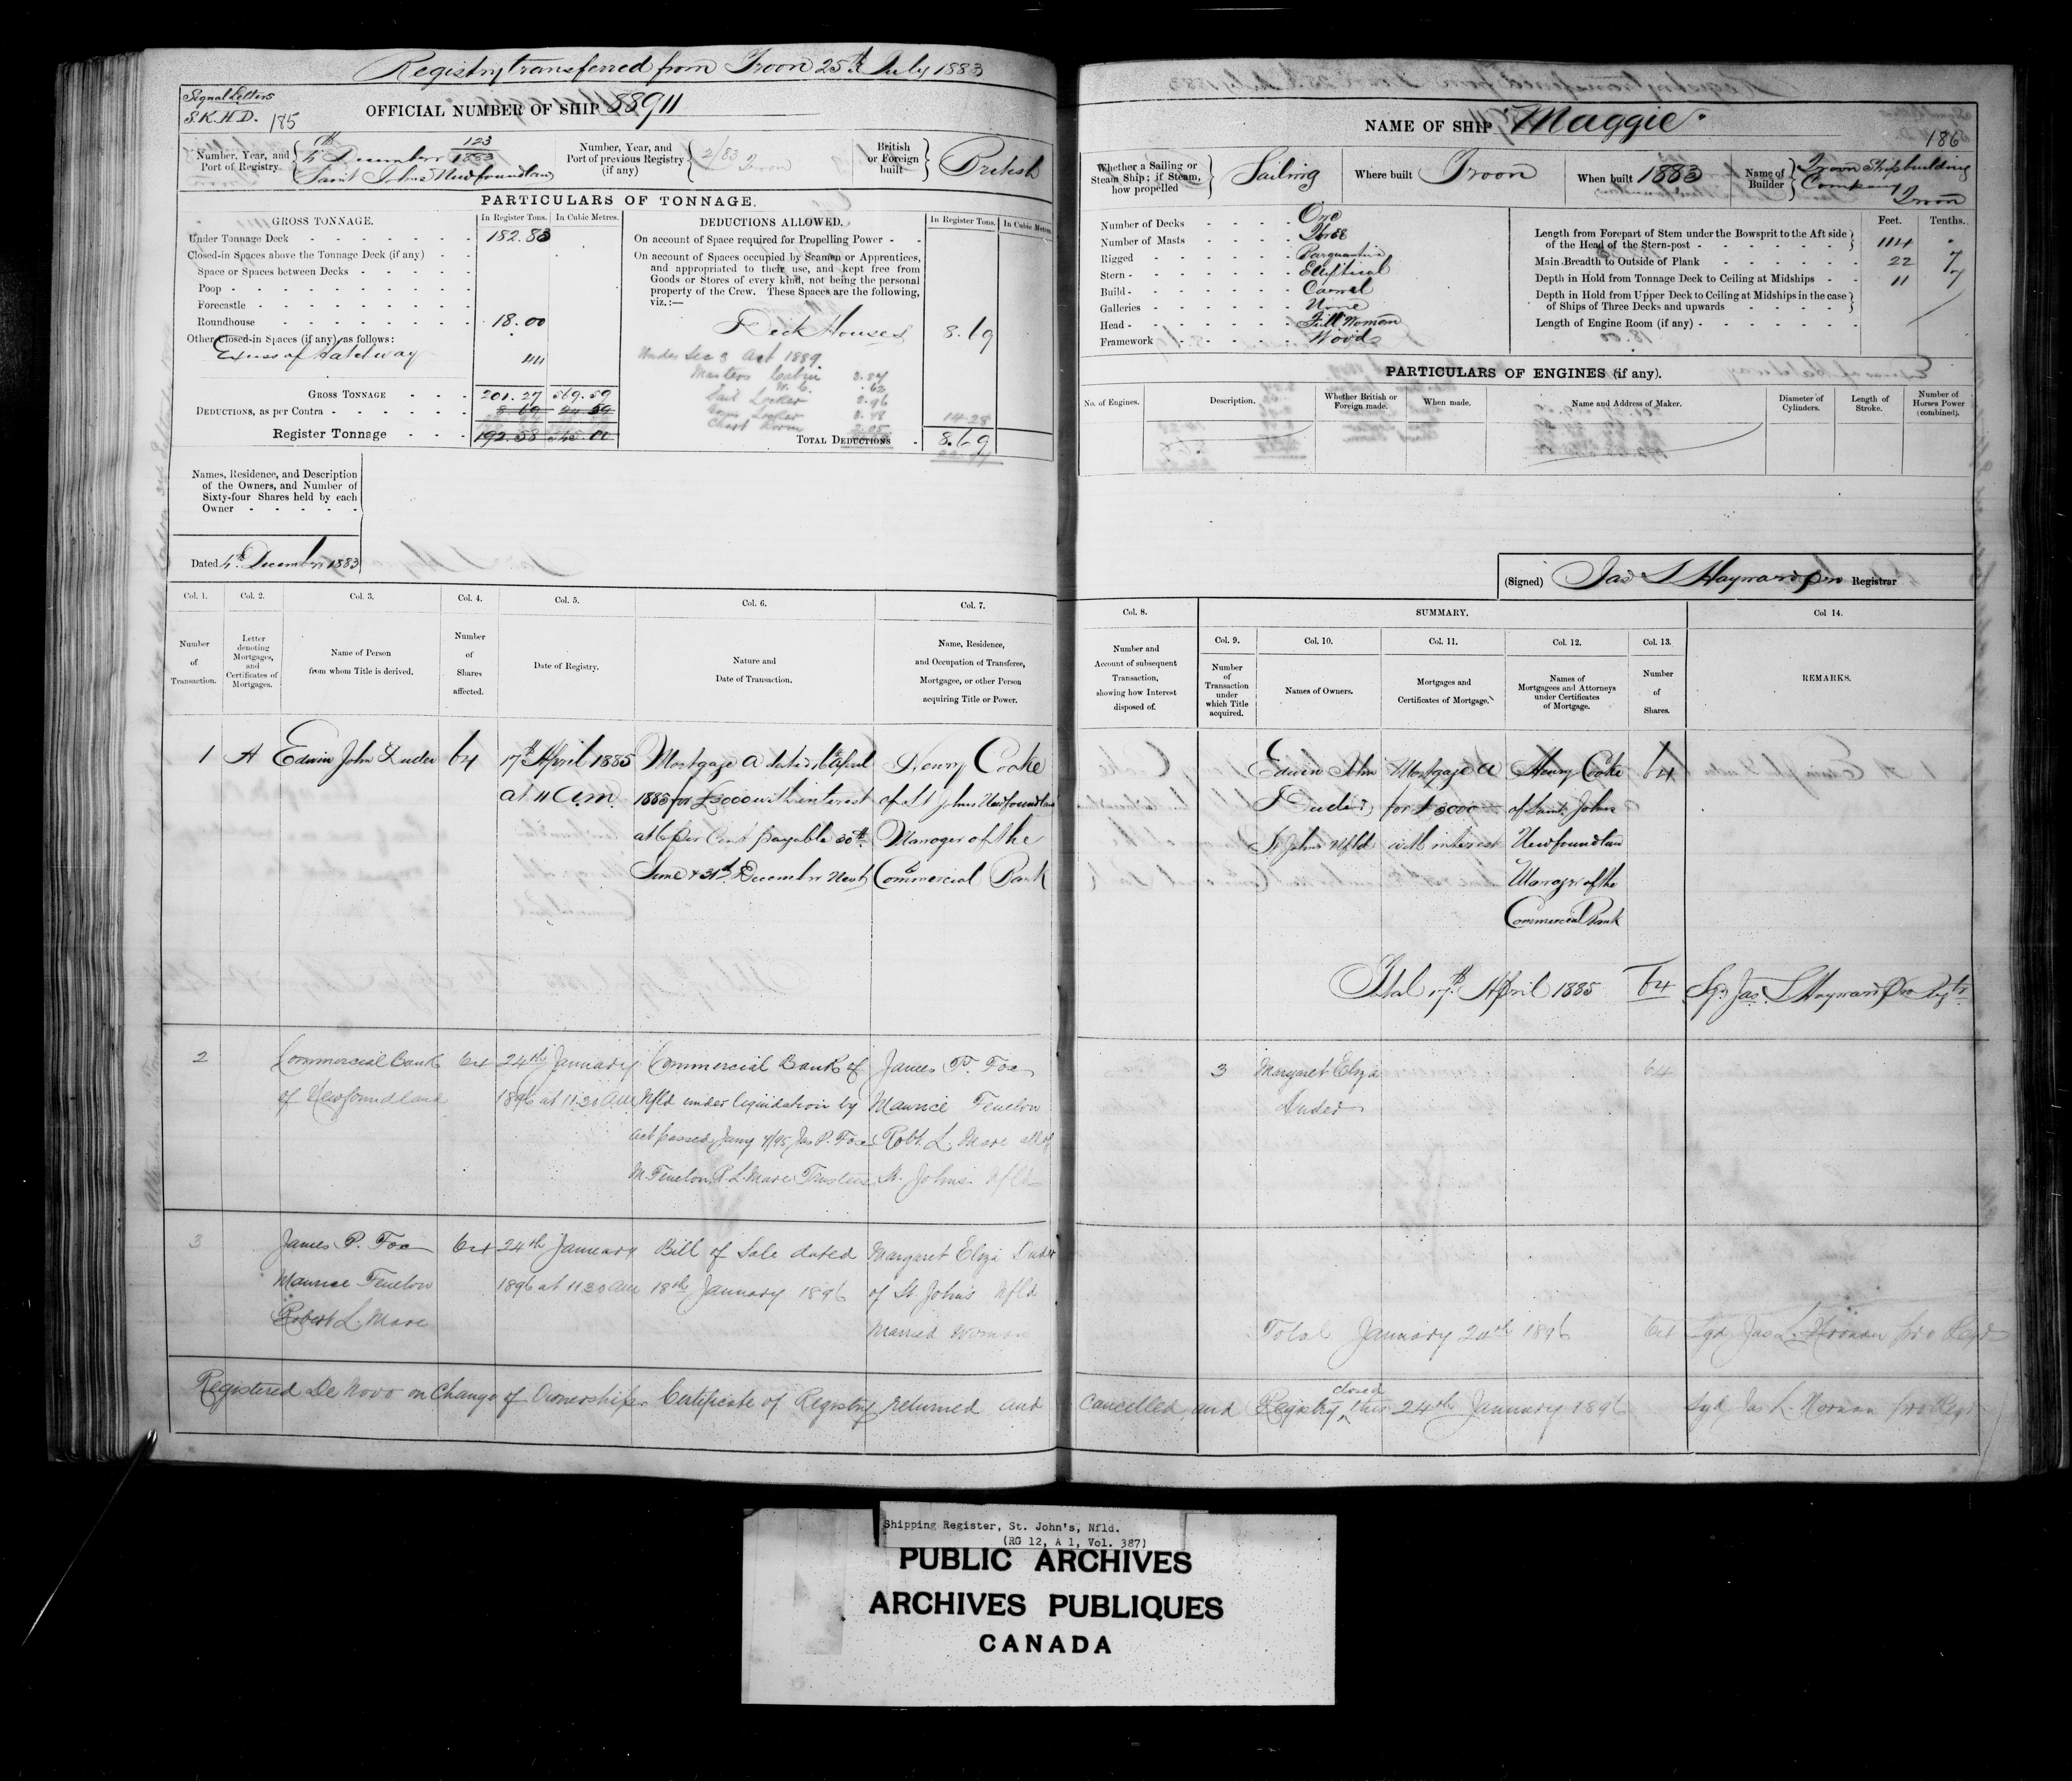 Registry transferred from Troon 25th July 1883
Signal Letters
S.K.H.D. 185
OFFICIAL NUMBER OF SHIP 88911
Number, Year, and Port of Registry 4th December 123/1883 Saint Johns Newfoundland
Number, Year, and Port of previous Registry (if any) 2/83 Troon
British or Foreign built British
PARTICULARS OF TONNAGE.
GROSS TONNAGE. In Register Tons. In Cubic Metres.
Under Tonnage Deck 182.83
Closed-in Spaces above the Tonnage Deck (if any)
Space or Spaces between Decks
Poop
Forecastle
Roundhouse 18.00
Other Closed-in Spaces (if any) as follows:
Excess of Hatchway .44
GROSS TONNAGE 201.27 569.59
DEDUCTIONS, as per Contra 8.69 24.59
Register Tonnage 192.58 545.00
DEDUCTIONS ALLOWED. In Register Tons. In Cubic Metres.
On account of Space required for Propelling Power
On account of Spaces occupied by Seamen or Apprentices,
and appropriated to their use, and kept free from
Goods or Stores of every kind, not being the personal
property of the Crew. These Spaces are the following,
viz.:—
Deck Houses 8.69
Under Sec 3 Act 1889
Masters Cabin 3.87
W.C. .62
Sail Locker 3.96
Locker 3.78
Chart Room 2.05
14.28
TOTAL DEDUCTIONS 8.69
Names, Residence, and Description
of the Owners, and Number of
Sixty-four Shares held by each
Owner
Dated 4th December 1883
Col. 1. Col. 2. Col. 3. Col. 4. Col. 5. Col. 6. Col. 7.
Number of Transaction.
Letter denoting Mortgages, and Certificates of Mortgages.
Name of Person from whom Title is derived.
Number of Shares affected.
Date of Registry.
Nature and Date of Transaction.
Name, Residence, and Occupation of Transferee, Mortgagee, or other Person acquiring Title or Power.
1 A Edwin John Duder 64 17th April 1885 Mortgage A dated 16th April Henry Cooke
at 11 a.m. 1885 for £3000 with interest of St Johns Newfoundland
at 6 per Cent payable 30th Manager of the
June & 31st December Next Commercial Bank
2 Commercial Bank 64 24th January Commercial Bank of James P. Fox
of Newfoundland 1896 at 11.30 am Nfld under liquidation by Maurice Fenelon
act passed Jany 4/95 Jas P. Fox Robt. L. Mare all of
M. Fenelon R. L. Mare Trustees St. Johns Nfld
3 James P. Fox 64 24th January Bill of Sale dated Margaret Eliza Duder
Maurice Fenelon 1896 at 11.30 am 18th January 1896 of St Johns Nfld
Robert L. Mare Married Woman
Registered De Novo on Change of Ownership. Certificate of Registry returned and
NAME OF SHIP Maggie.
186
Whether a Sailing or Steam Ship; if Steam, how propelled Sailing
Where built Troon
When built 1883
Name of Builder Troon Shipbuilding Company Troon
Number of Decks One
Number of Masts Three
Rigged Barquantine
Stern Elliptical
Build Carvel
Galleries None
Head Full Woman
Framework Wood
Feet. Tenths.
Length from Forepart of Stem under the Bowsprit to the Aft side
of the Head of the Stern-post 114 .
Main Breadth to Outside of Plank 22 7
Depth in Hold from Tonnage Deck to Ceiling at Midships 11 7
Depth in Hold from Upper Deck to Ceiling at Midships in the case
of Ships of Three Decks and upwards
Length of Engine Room (if any)
PARTICULARS OF ENGINES (if any).
No. of Engines. Description. Whether British or Foreign made. When made. Name and Address of Maker. Diameter of Cylinders. Length of Stroke. Number of Horses Power (combined).
(Signed) Jas L Hayward pro Registrar
Col. 8. SUMMARY. Col 14.
Col. 9. Col. 10. Col. 11. Col. 12. Col. 13.
Number and Account of subsequent Transaction, showing how Interest disposed of.
Number of Transaction under which Title acquired.
Names of Owners.
Mortgages and Certificates of Mortgage.
Names of Mortgagees and Attorneys under Certificates of Mortgage.
Number of Shares.
REMARKS.
Edwin John Mortgage A Henry Cooke 64
Duder for £3000 of Saint Johns
St Johns Nfld with interest Newfoundland
Manager of the
Commercial Bank
Total 17th April 1885 64 Sgd Jas L Hayward Pro Regtr
3 Margaret Eliza 64
Duder
Total January 24th 1896 64 Sgd Jas L. Noonan pro Regr
Cancelled and Registry closed this 24th January 1896 Sgd Jas L. Noonan pro Regr
Shipping Register, St. John's, Nfld.
(RG 12, A 1, Vol. 387)
PUBLIC ARCHIVES
ARCHIVES PUBLIQUES
CANADA